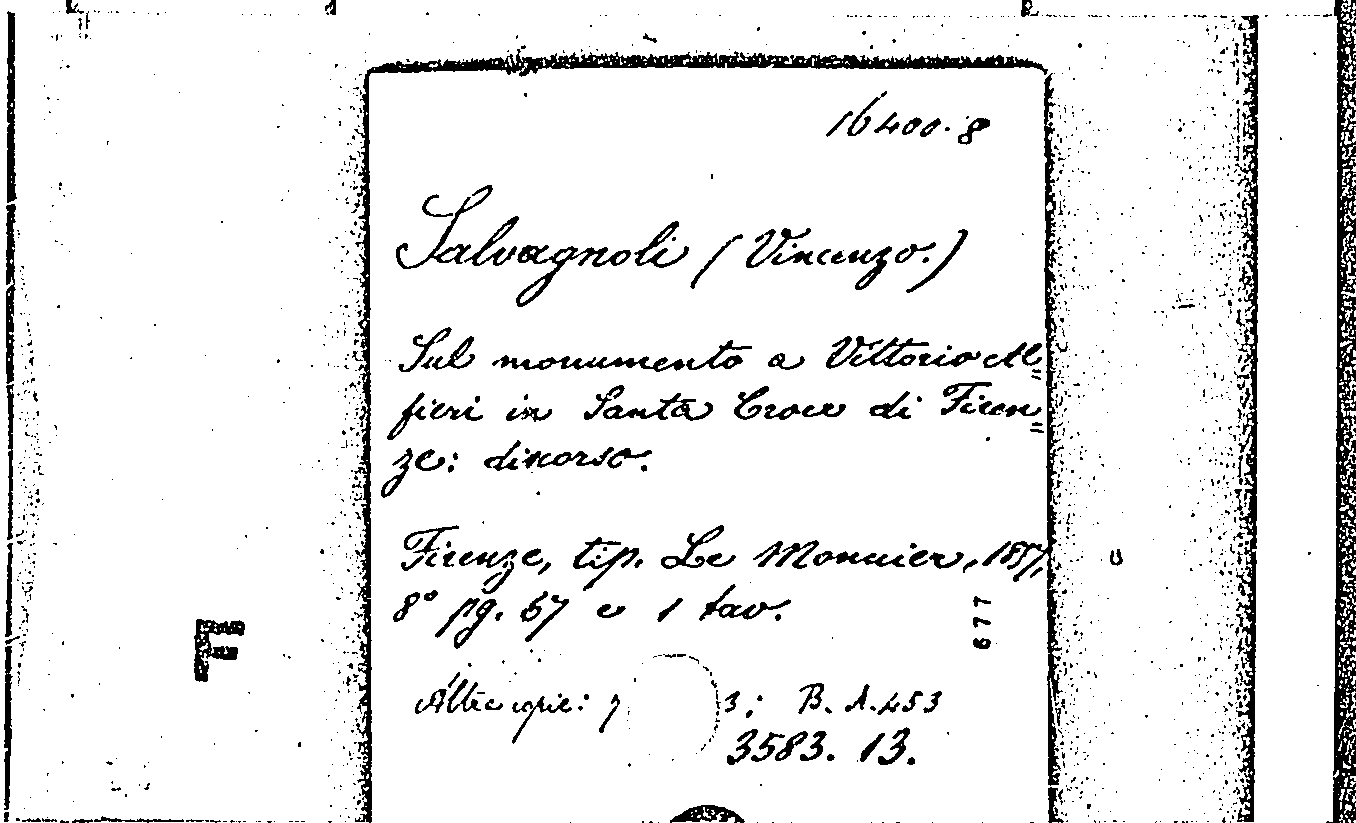 16400.8
Salvagnoli (Vincenzo.)
Sul monumento a Vittorio Al=
fieri in Santa Croce di Firen=
ze: discorso.
Firenze, tip. Le Monnier, 1857,
8° pg. 57 e 1 tav.
677
F
Altre copie: 3; B. A. 453
3583. 13.